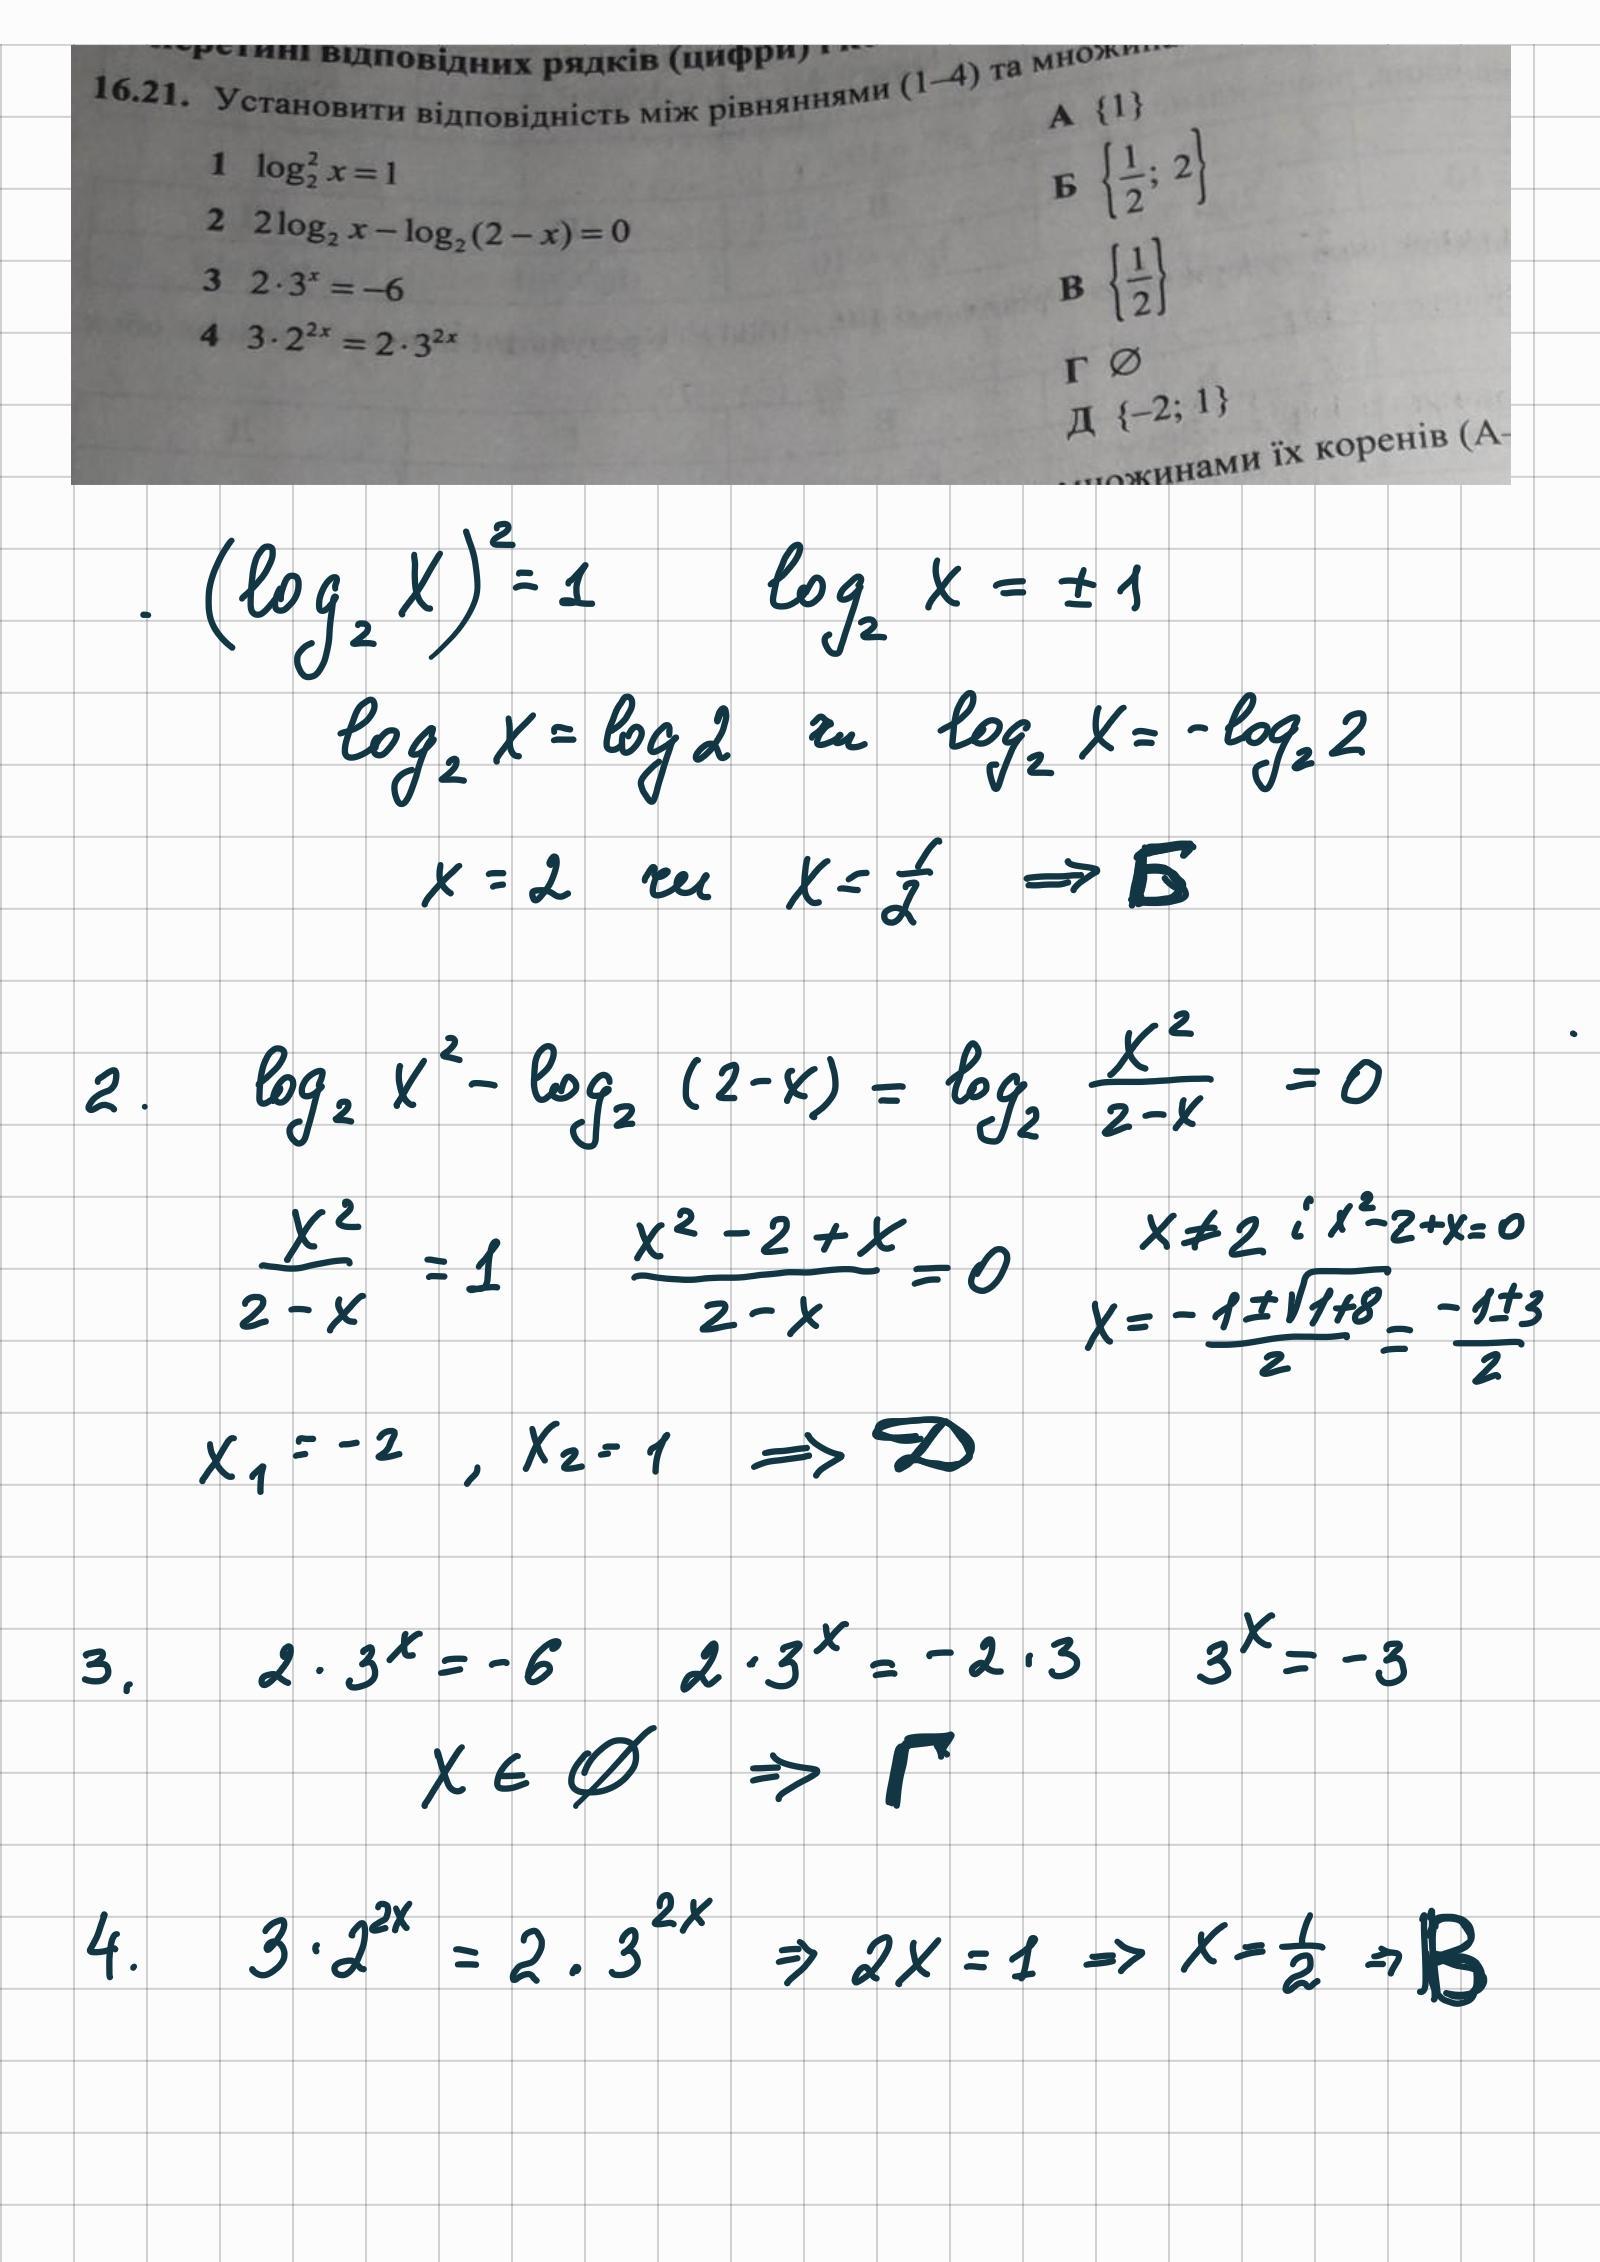 перетині відповідних рядків (цифри) і
16.21. Установити відповідність між рівняннями (1–4) та
1 log₂² x = 1
2 2log₂ x − log₂(2 − x) = 0
3 2·3ˣ = −6
4 3·2²ˣ = 2·3²ˣ
А {1}
Б {1/2; 2}
В {1/2}
Г ∅
Д {−2; 1}
множинами їх коренів (А-
. (log₂ x)² = 1 log₂ x = ±1
log₂ x = log 2 чи log₂ x = -log₂ 2
x = 2 чи x = 1/2 ⇒ Б
2. log₂ x² - log₂ (2-x) = log₂ x²/(2-x) = 0
x²/(2-x) = 1 (x² - 2 + x)/(2-x) = 0 x ≠ 2 і x²-2+x=0
x = -1±√(1+8)/2 = (-1±3)/2
x₁ = -2 , x₂ = 1 ⇒ Д
3. 2·3ˣ = -6 2·3ˣ = -2·3 3ˣ = -3
x ∈ ∅ ⇒ Г
4. 3·2²ˣ = 2·3²ˣ ⇒ 2x = 1 ⇒ x = 1/2 ⇒ В